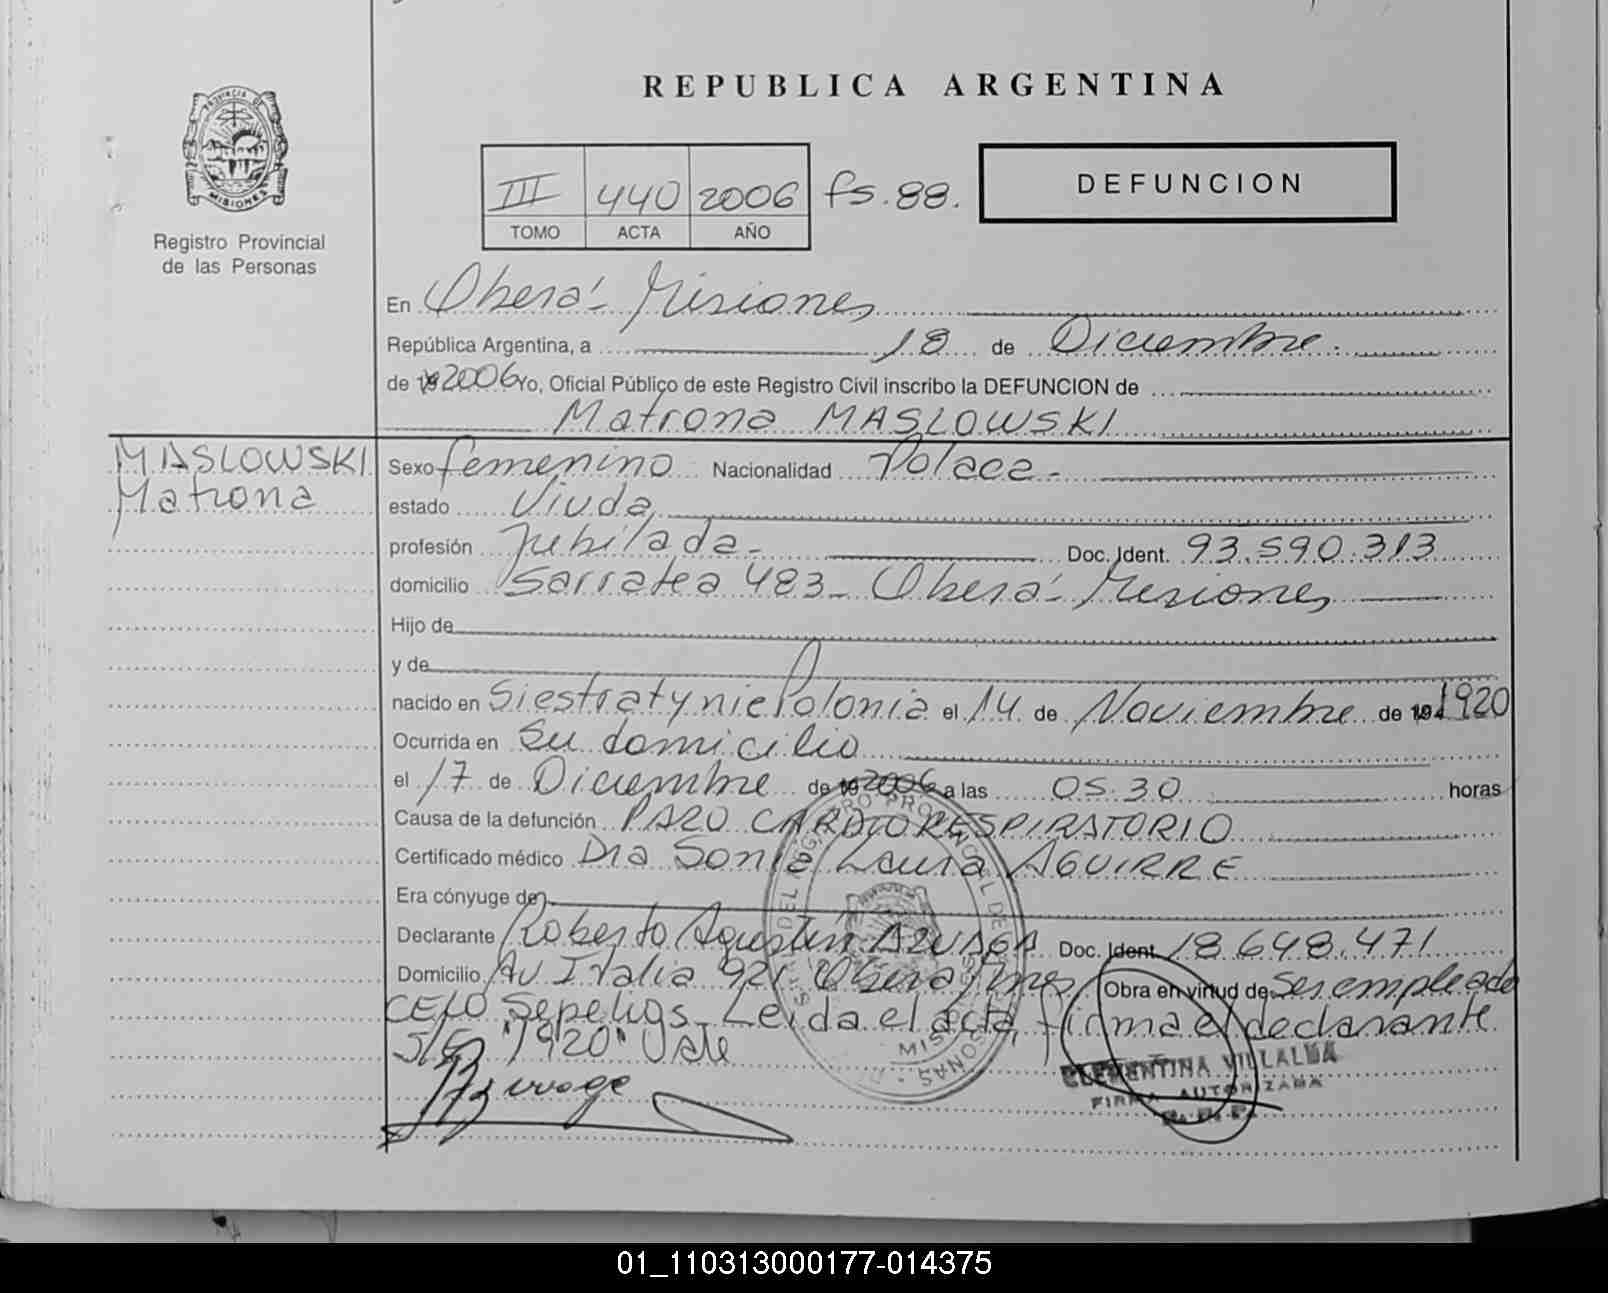 REPUBLICA ARGENTINA
PROVINCIA DE
MISIONES
Registro Provincial
de las Personas
III 440 2006 fs. 88.
TOMO ACTA AÑO
DEFUNCION
En Oberá - Misiones
República Argentina, a 18 de Diciembre.
de 19 2006 Yo, Oficial Público de este Registro Civil inscribo la DEFUNCION de
Matrona MASLOWSKI
MASLOWSKI
Matrona
Sexo femenino Nacionalidad Polaca -
estado Viuda
profesión Jubilada - Doc. Ident. 93.590.313
domicilio Sarratea 483 - Oberá - Misiones
Hijo de
y de
nacido en Siestratynie Polonia el 14 de Noviembre de 19 1920
Ocurrida en Su domicilio
el 17 de Diciembre de 19 2006 a las 05.30 horas
Causa de la defunción PARO CARDIORESPIRATORIO
Certificado médico Dra Sonia Laura AGUIRRE
Era cónyuge de
Declarante Roberto Agustín AZUAGA Doc. Ident. 18.648.471
Domicilio Av Italia 921 Oberá Mnes Obra en virtud de Ser empleado
CELO Sepelios. Leída el acta, firma el declarante
S/E "1920" Vale
CLEMENTINA VILLALBA
FIRMA AUTORIZADA
R. P. P.
01_110313000177-014375